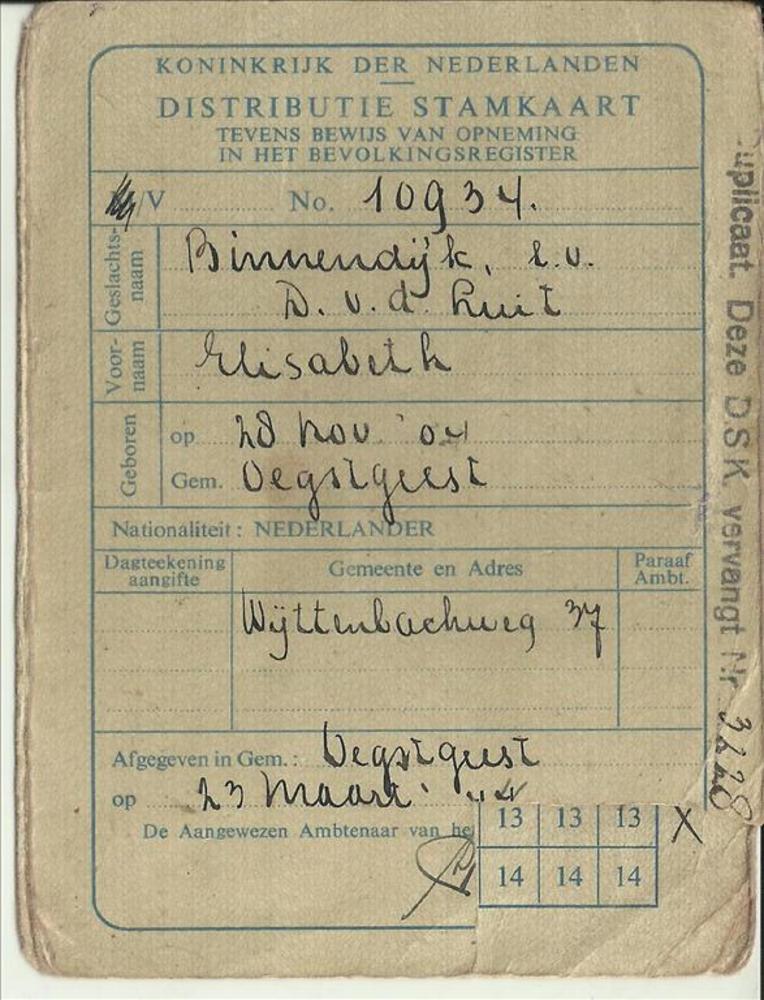 KONINKRIJK DER NEDERLANDEN
DISTRIBUTIE STAMKAART
TEVENS BEWIJS VAN OPNEMING
IN HET BEVOLKINGSREGISTER
/V No. 10934.
Geslachts-
naam
Binnendijk, e.v.
D. v. d. Luit
Voor-
naam
Elisabeth
Geboren
op 28 nov. '04
Gem. Oegstgeest
Nationaliteit: NEDERLANDER
Dagteekening
aangifte
Gemeente en Adres
Paraaf
Ambt.
Wijttenbachweg 37
Afgegeven in Gem.: Oegstgeest
op 23 Maart '44
De Aangewezen Ambtenaar van he
13 13 13 X
14 14 14
uplicaat. Deze D.S.K. vervangt Nr.